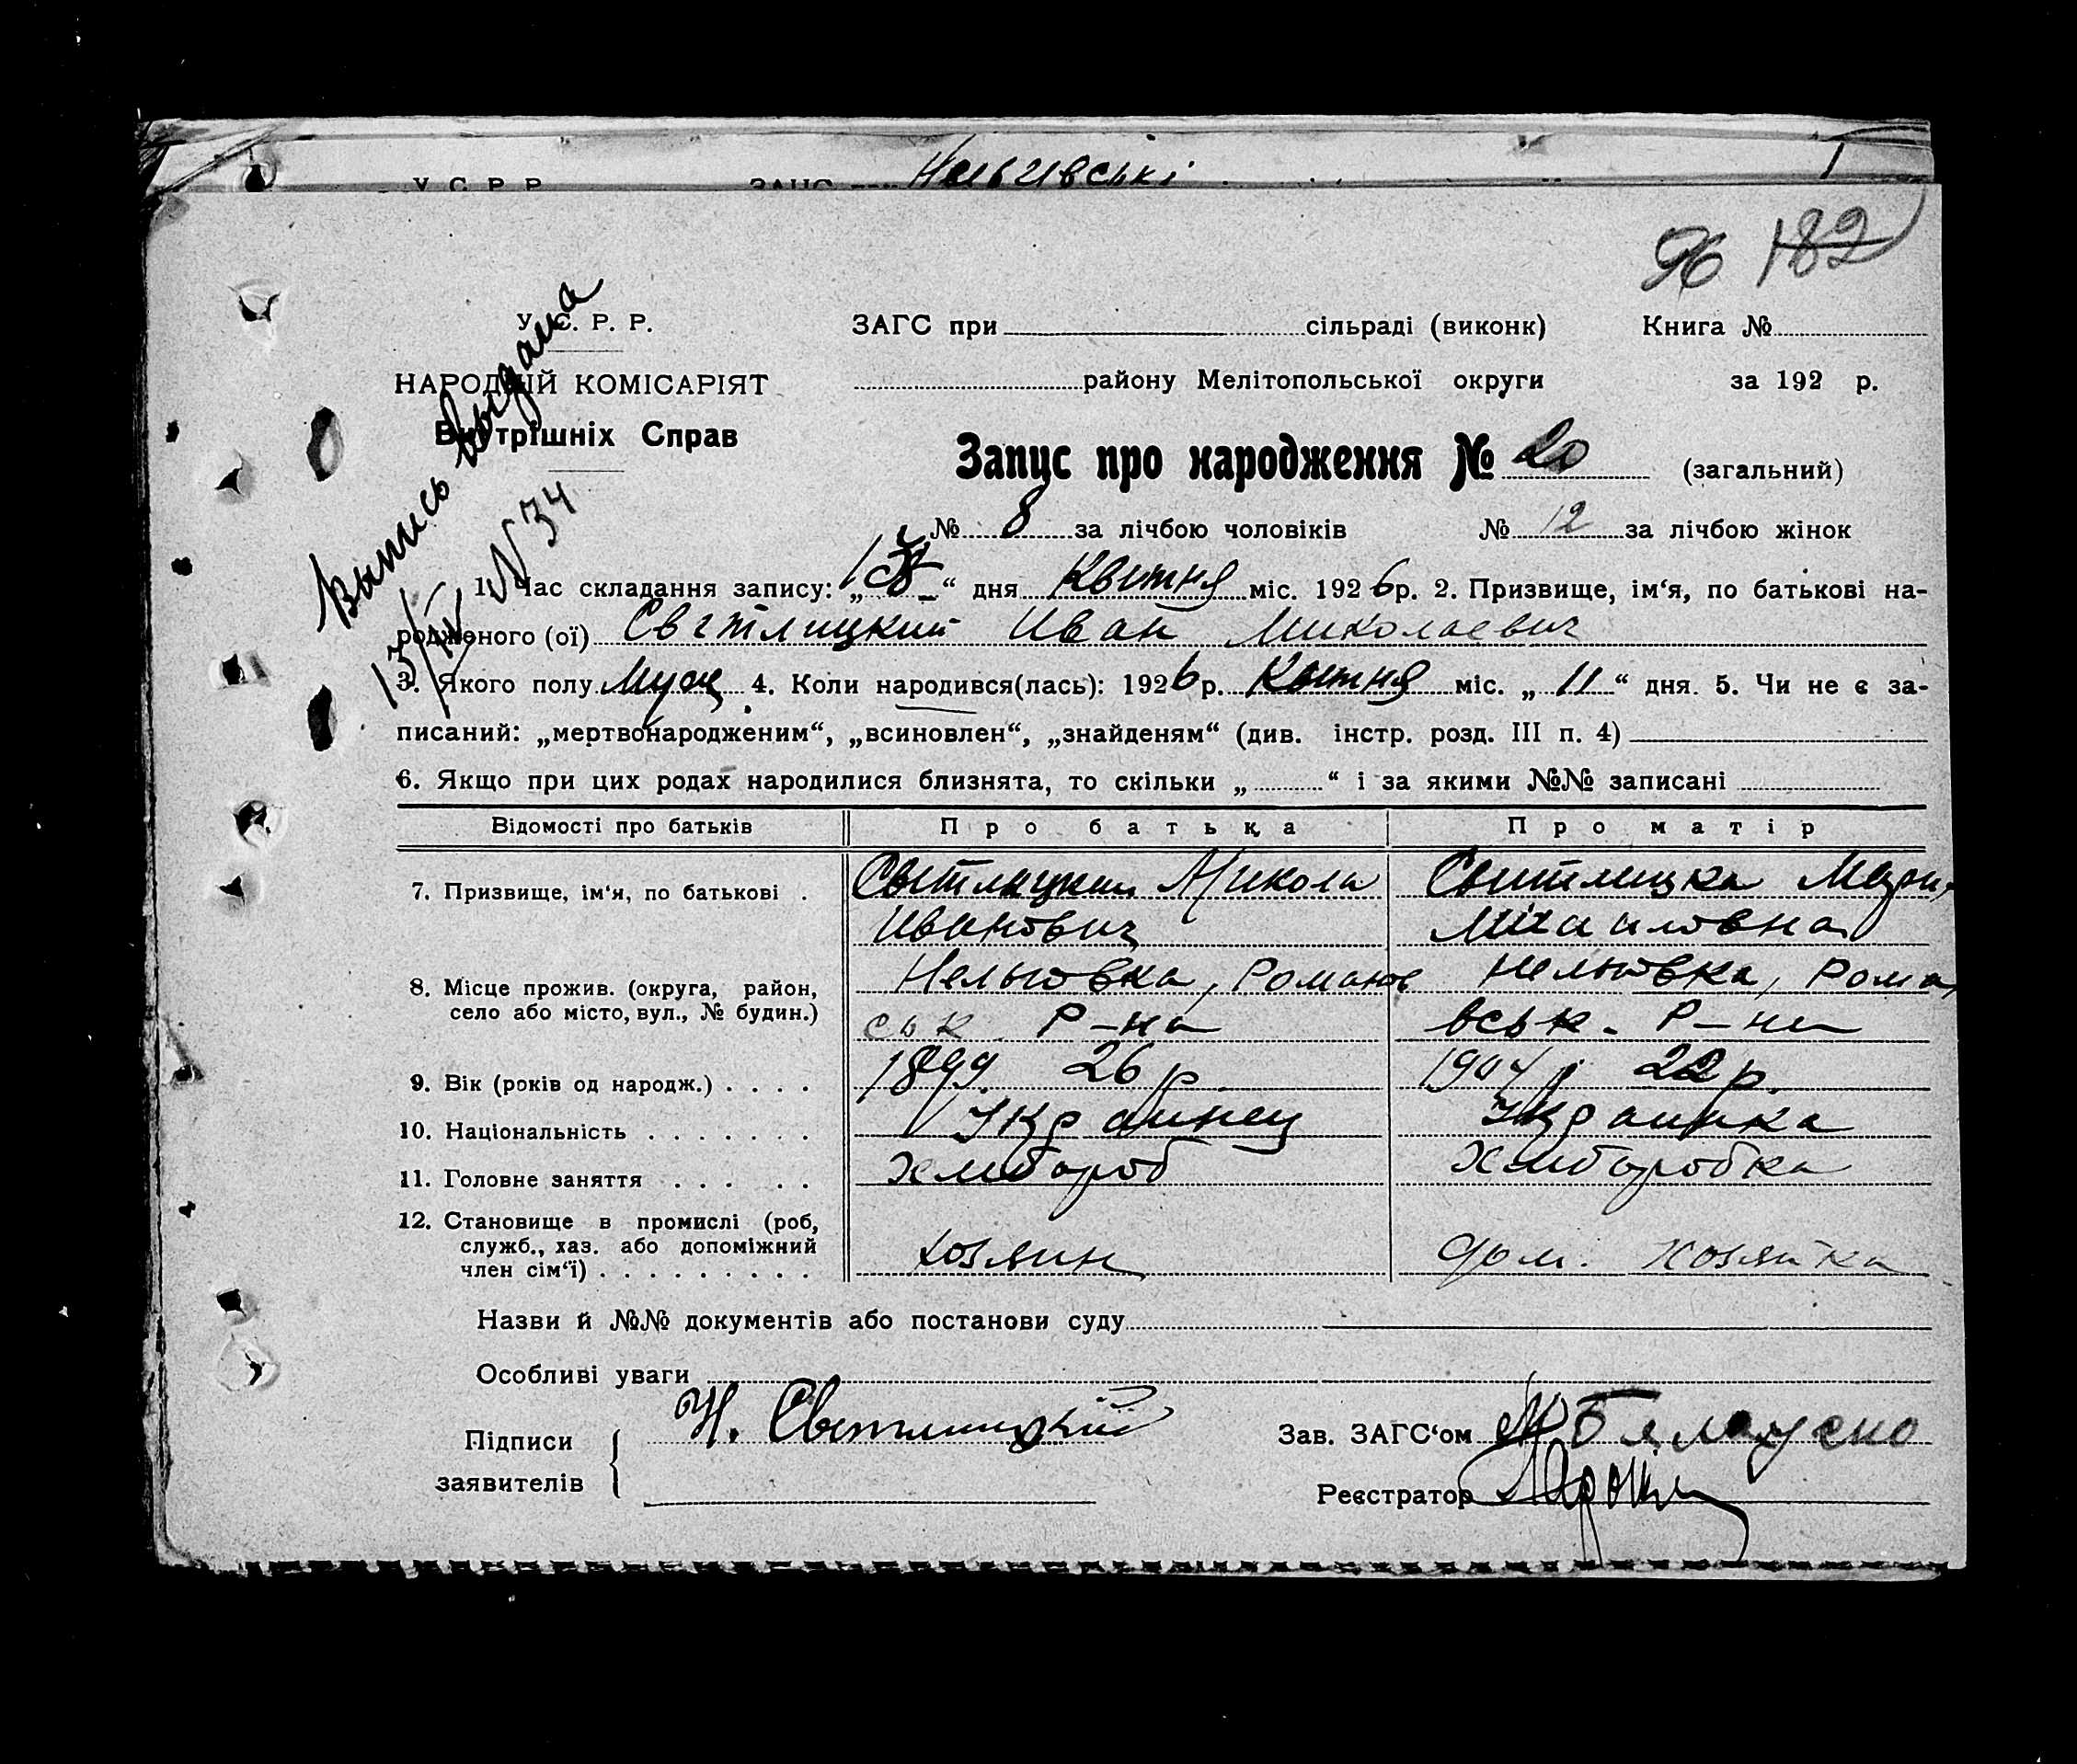 У. С. Р. Р. ЗАГС при
96 182
У. С. Р. Р. ЗАГС при сільраді (виконк) Книга №
НАРОДНІЙ КОМІСАРІЯТ району Мелітопольської округи за 192 р.
Внутрішніх Справ
Выпись выдана
13/IV N 34
Запис про народження № 20 (загальний)
№ 8 за лічбою чоловіків № 12 за лічбою жінок
1. Час складання запису: „ “ дня Квитня міс. 1926 р. 2. Призвище, ім‘я, по батькові на-
родженого (ої) Світлицкий Иван Миколаевич
3. Якого полу Муж. 4. Коли народився(лась): 1926 р. Квитня міс. „11“ дня. 5. Чи не є за-
писаний: „мертвонародженим“, „всиновлен“, „знайденям“ (див. інстр. розд. III п. 4)
6. Якщо при цих родах народилися близнята, то скільки „ “ і за якими №№ записані
Відомості про батьків Про батька Про матір
7. Призвище, ім‘я, по батькові . Свитлицкий Микола Свитлицка Мари
Иванович Михаиловна
8. Місце прожив. (округа, район, Нельговка, Романов Нельговка, Рома
село або місто, вул., № будин.) ськ Р-на вськ. Р-на
9. Вік (років од народж.) . . . . 1899. 26 р. 1904 р 22 р.
10. Національність . . . . . . . Украинец Украинка
11. Головне заняття . . . . . Хлибороб Хлиборобка
12. Становище в промислі (роб,
служб., хаз. або допоміжний хозяин дом. хозяйка
член сім‘ї) . . . . . . . . .
Назви й №№ документів або постанови суду
Особливі уваги
Підписи Н. Светлицкий Зав. ЗАГС‘ом
заявителів Реєстратор